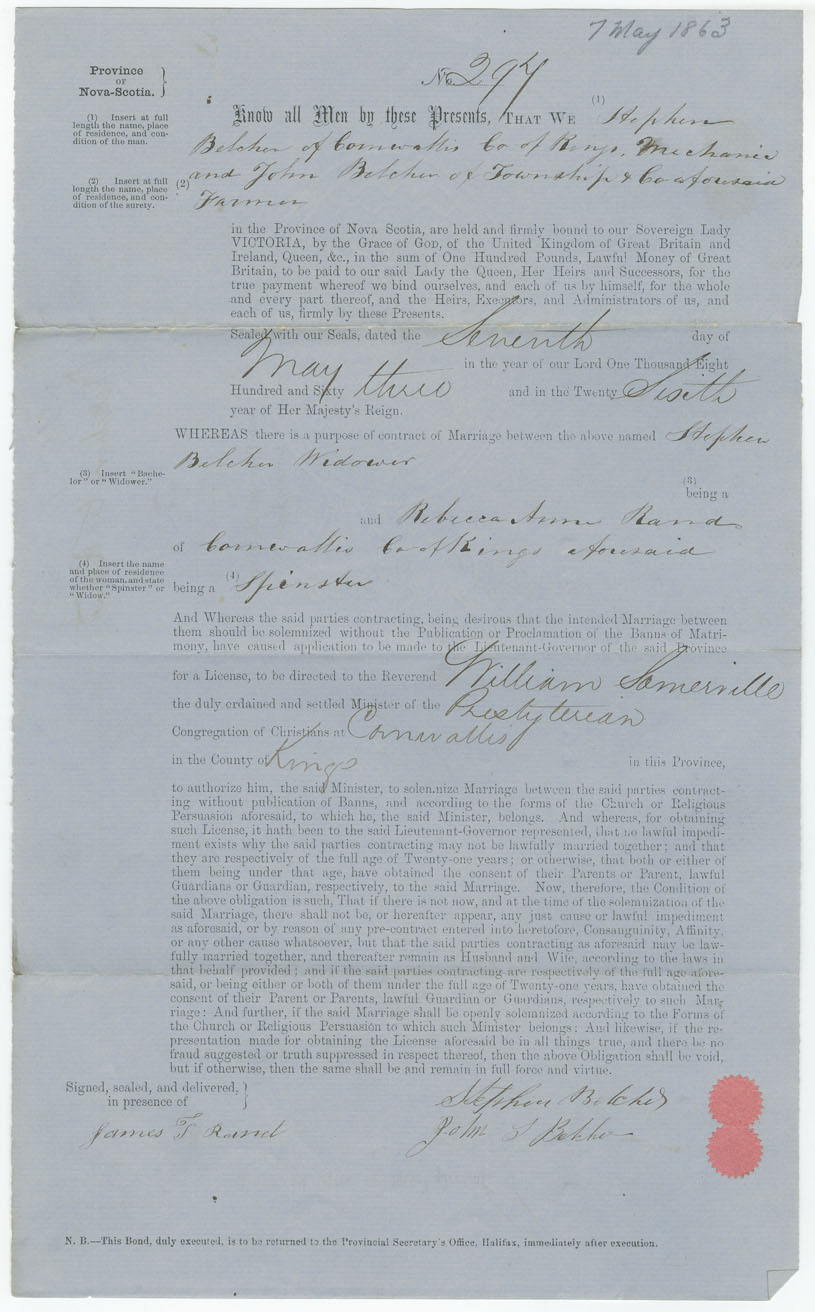 7 May 1863
Province
OF
Nova-Scotia.
No. 297
(1) Insert at full
length the name, place
of residence, and con-
dition of the man.
(2) Insert at full
length the name, place
of residence, and con-
dition of the surety.
Know all Men by these Presents, THAT WE (1) Stephen
Belcher of Cornwallis Co of Kings, Mechanic
(2) and John Belcher of Township & Co aforesaid
Farmer
in the Province of Nova Scotia, are held and firmly bound to our Sovereign Lady
VICTORIA, by the Grace of GOD, of the United Kingdom of Great Britain and
Ireland, Queen, &c., in the sum of One Hundred Pounds, Lawful Money of Great
Britain, to be paid to our said Lady the Queen, Her Heirs and Successors, for the
true payment whereof we bind ourselves, and each of us by himself, for the whole
and every part thereof, and the Heirs, Executors, and Administrators of us, and
each of us, firmly by these Presents.
Sealed with our Seals, dated the Seventh day of
May in the year of our Lord One Thousand Eight
Hundred and Sixty three and in the Twenty Sixth
year of Her Majesty's Reign.
WHEREAS there is a purpose of contract of Marriage between the above named Stephen
Belcher Widower
(3) Insert "Bache-
lor" or "Widower."
(3)
being a
and Rebecca Anne Rand
of Cornwallis Co of Kings aforesaid
(4) Insert the name
and place of residence
of the woman, and state
whether "Spinster" or
"Widow."
being a (4) Spinster
And Whereas the said parties contracting, being desirous that the intended Marriage between
them should be solemnized without the Publication or Proclamation of the Banns of Matri-
mony, have caused application to be made to the Lieutenant-Governor of the said Province
for a License, to be directed to the Reverend William Somerville
the duly ordained and settled Minister of the Presbyterian
Congregation of Christians at Cornwallis
in the County of Kings in this Province,
to authorize him, the said Minister, to solemnize Marriage between the said parties contract-
ing without publication of Banns, and according to the forms of the Church or Religious
Persuasion aforesaid, to which he, the said Minister, belongs. And whereas, for obtaining
such License, it hath been to the said Lieutenant-Governor represented, that no lawful impedi-
ment exists why the said parties contracting may not be lawfully married together; and that
they are respectively of the full age of Twenty-one years; or otherwise, that both or either of
them being under that age, have obtained the consent of their Parents or Parent, lawful
Guardians or Guardian, respectively, to the said Marriage. Now, therefore, the Condition of
the above obligation is such, That if there is not now, and at the time of the solemnization of the
said Marriage, there shall not be, or hereafter appear, any just cause or lawful impediment
as aforesaid, or by reason of any pre-contract entered into heretofore, Consanguinity, Affinity,
or any other cause whatsoever, but that the said parties contracting as aforesaid may be law-
fully married together, and thereafter remain as Husband and Wife, according to the laws in
that behalf provided; and if the said parties contracting are respectively of the full age afore-
said, or being either or both of them under the full age of Twenty-one years, have obtained the
consent of their Parent or Parents, lawful Guardian or Guardians, respectively to such Mar-
riage: And further, if the said Marriage shall be openly solemnized according to the Forms of
the Church or Religious Persuasion to which such Minister belongs: And likewise, if the re-
presentation made for obtaining the License aforesaid be in all things true, and there be no
fraud suggested or truth suppressed in respect thereof, then the above Obligation shall be void,
but if otherwise, then the same shall be and remain in full force and virtue.
Signed, sealed, and delivered,
in presence of
Stephen Belcher
James T Rand
John S Belcher
N. B.—This Bond, duly executed, is to be returned to the Provincial Secretary's Office, Halifax, immediately after execution.